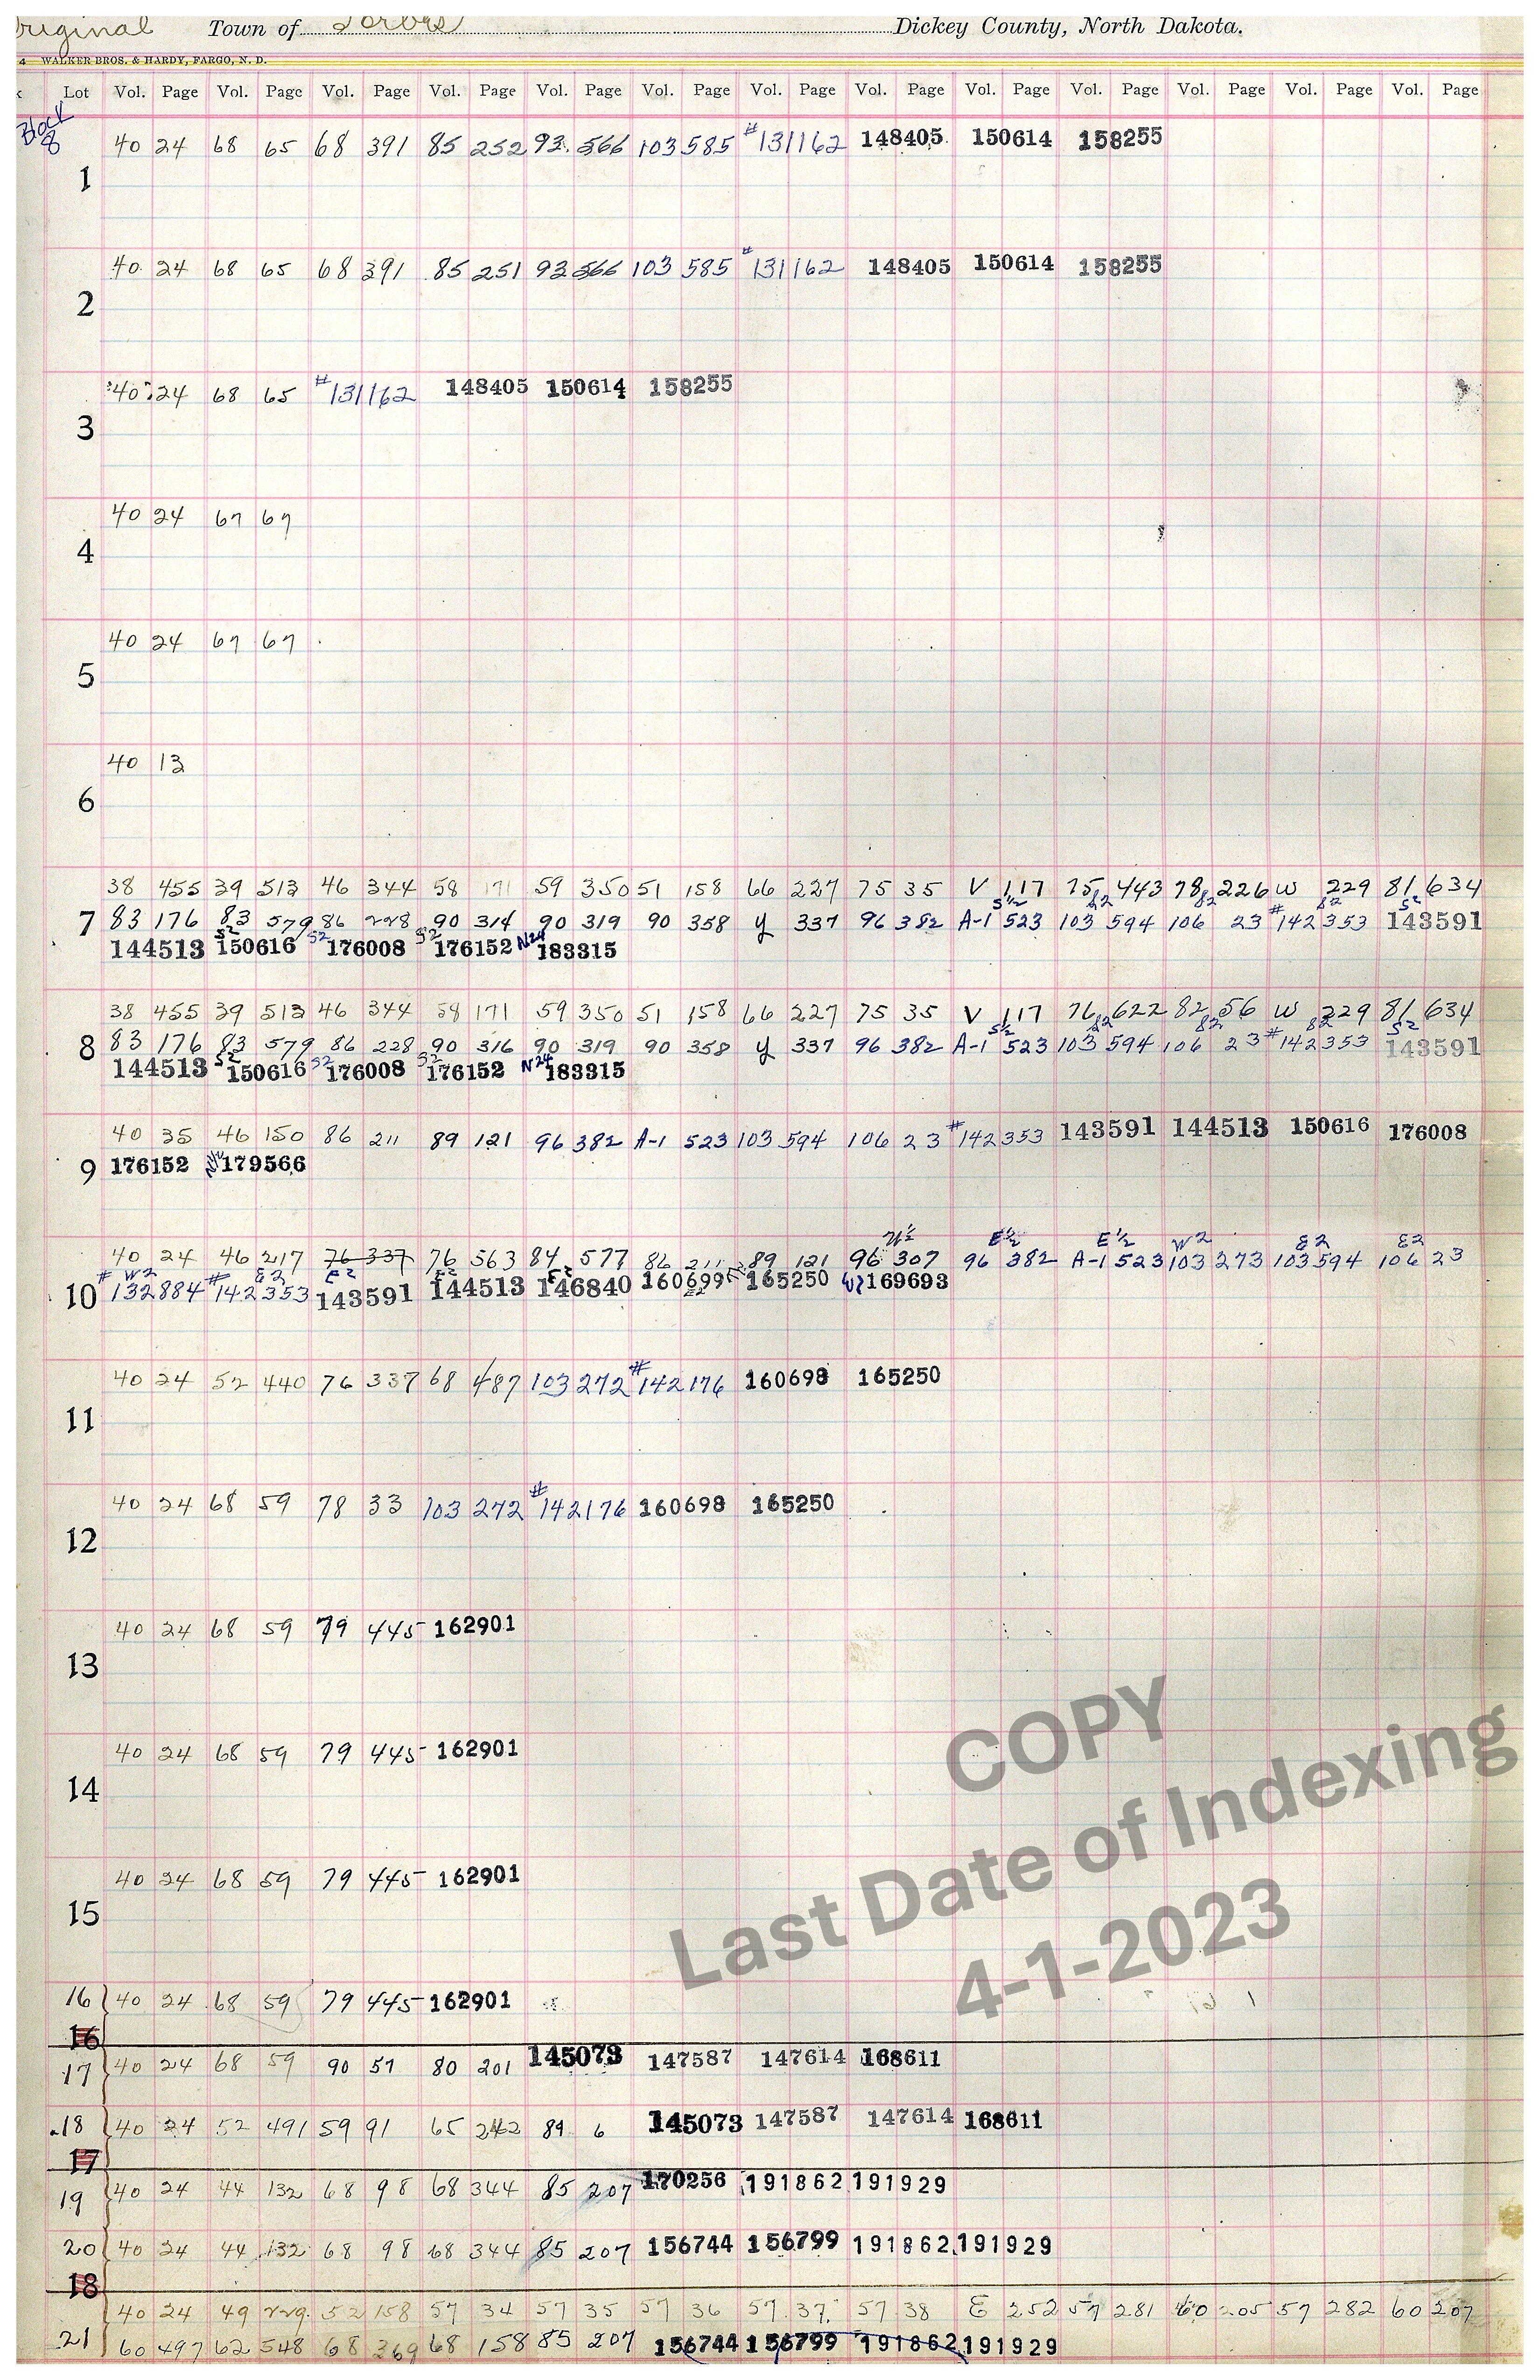 Original Town of Forbes Dickey County, North Dakota.
4 WALKER BROS. & HARDY, FARGO, N. D.
Lot Vol. Page Vol. Page Vol. Page Vol. Page Vol. Page Vol. Page Vol. Page Vol. Page Vol. Page Vol. Page Vol. Page Vol. Page Vol. Page
Block
8
40 24 68 65 68 391 85 252 93 566 103 585 #131162 148405 150614 158255
1
40 24 68 65 68 391 85 251 93 566 103 585 #131162 148405 150614 158255
2
40 24 68 65 #131162 148405 150614 158255
3
40 24 67 67
4
40 24 67 67
5
40 13
6
38 455 39 513 46 344 58 171 59 350 51 158 66 227 75 35 V 117 75 443 78 226 W 229 81 634
S½ S2 S2 S2 S2
7 83 176 83 579 86 228 90 314 90 319 90 358 y 337 96 382 A-1 523 103 594 106 23 #142353 143591
144513 S2 150616 S2 176008 S2 176152 N24 183315
38 455 39 513 46 344 58 171 59 350 51 158 66 227 75 35 V 117 76 622 82 56 W 229 81 634
S½ S2 S2 S2 S2
8 83 176 83 579 86 228 90 316 90 319 90 358 y 337 96 382 A-1 523 103 594 106 23 #142353 143591
144513 S2 150616 S2 176008 S2 176152 N24 183315
40 35 46 150 86 211 89 121 96 382 A-1 523 103 594 106 23 #142353 143591 144513 150616 176008
9 176152 179566
W½ E½ E½ W2 E2 E2
40 24 46 217 76 337 76 563 84 577 86 211 89 121 96 307 96 382 A-1 523 103 273 103 594 106 23
W2 E2 E2 E2 E2
10 #132884 #142353 143591 144513 146840 160699 165250 W2 169693
E2
40 24 52 440 76 337 68 487 103 272 #142176 160698 165250
11
40 24 68 59 78 33 103 272 #142176 160698 165250
12
40 24 68 59 79 445 162901
13
40 24 68 59 79 445 162901
14
40 24 68 59 79 445 162901
15
16 40 24 68 59 79 445 162901
16
17 40 24 68 59 90 57 80 201 145073 147587 147614 168611
18 40 24 52 491 59 91 65 242 89 6 145073 147587 147614 168611
17
19 40 24 44 132 68 98 68 344 85 207 170256 191862 191929
20 40 24 44 132 68 98 68 344 85 207 156744 156799 191862 191929
18
40 24 49 229 52 158 57 34 57 35 57 36 57 37 57 38 E 252 57 281 60 205 57 282 60 207
21 60 497 62 548 68 369 68 158 85 207 156744 156799 191862 191929
COPY
Last Date of Indexing
4-1-2023